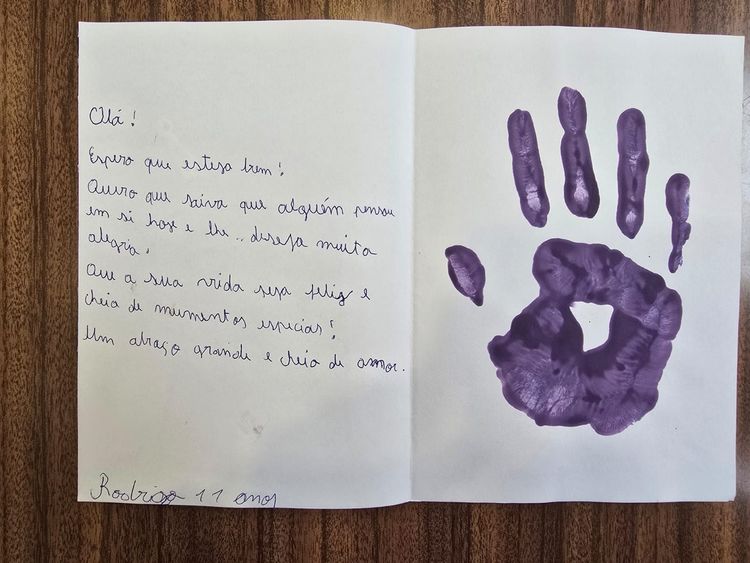 Olá!
Espero que esteja bem!
Quero que saiva que alguém pensou
em si hoje e lhe.. deseja muita
alegria.
Que a sua vida seja feliz e
cheia de mumentos especias!
Um abraço grande e cheio de amor.
Rodrigo 11 anos